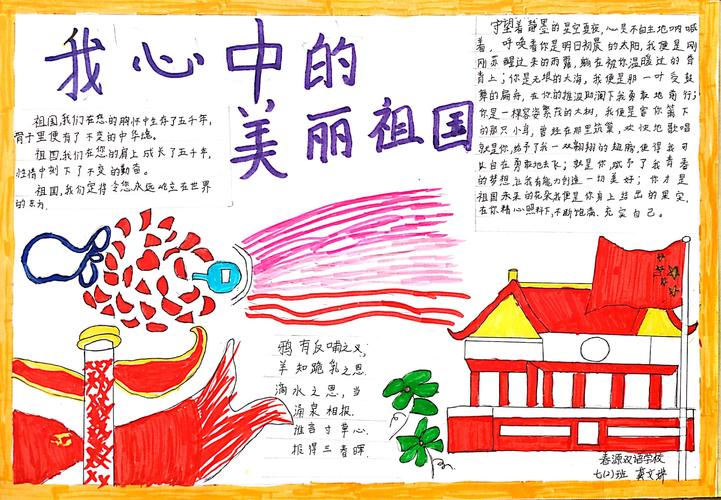 我心中的
美丽祖国
祖国,我们在您的胸怀中生存了五千年,
骨子里便有了不变的中华魂。
祖国,我们在您的肩上成长了五千年,
性情中刻下了不变的勤奋。
祖国,我们定将令您永远屹立在世界
的东方.
守望着静墨的星空夏夜,心是不自主地呐喊
着,呼唤着你是明日初晨的太阳,我便是刚
刚苏醒过来的雨露,躺在被你温暖过的脊
背上;你是无垠的大海,我便是那一叶受鼓
舞的扁舟,在你的推波助澜下我勇敢地前行;
你是一棵客姿繁茂的大树,我便是客你篱下
的那只小鸟,曾经在那里筑巢,欢快地歌唱
就是你,给予了我一双翱翔的翅膀,使得我可
以自在勇敢地去飞;就是你,赋予了我青春
的梦想,让我有能力创造一切美好;你才是
祖国未来的花朵我便是你身上结出的果实,
在你精心照料下,不断饱满、充实自己。
鸦有反哺之义,
羊知跪乳之恩.
滴水之恩,当
涌泉相报.
谁言寸草心.
报得三春晖
春源双语学校
七(2)班 龚文